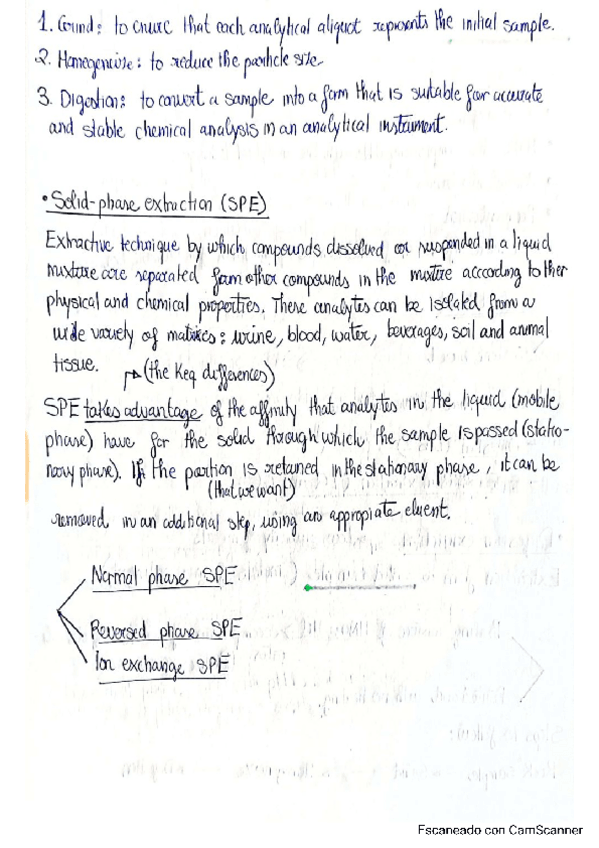 1. Grind: to ensure that each analytical aliquot represents the initial sample.
2. Homogenize: to reduce the particle size
3. Digestion: to convert a sample into a form that is suitable for accurate
and stable chemical analysis in an analytical instrument.
• Solid-phase extraction (SPE)
Extractive technique by which compounds dissolved or suspended in a liquid
mixture are separated from other compounds in the mixture according to their
physical and chemical properties. These analytes can be isolated from a
wide variety of matrixes: urine, blood, water, beverages, soil and animal
tissue.
(the key differences)
SPE takes advantage of the affinity that analytes in the liquid (mobile
phase) have for the solid through which the sample is passed (statio-
nary phase). If the portion is retained in the stationary phase, it can be
(that we want)
removed in an additional step, using an appropiate eluent.
Normal phase SPE
Reversed phase SPE
Ion exchange SPE
Escaneado con CamScanner